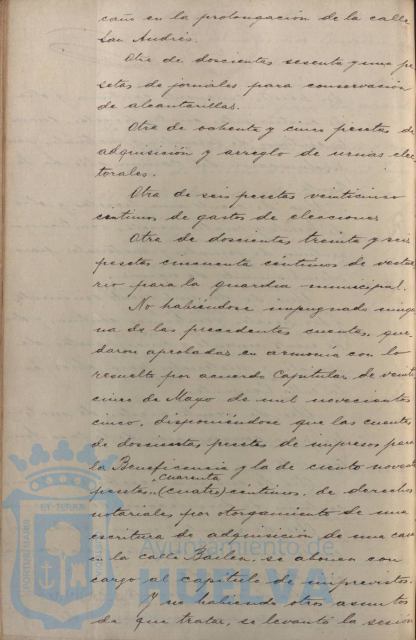 caño en la prolongación de la calle
San Andrés.
Otra de doscientas sesenta y una pe
setas de jornales para conservación
de alcantarillas.
Otra de ochenta y cinco pesetas de
adquisición y arreglo de urnas elec
torales.
Otra de seis pesetas veinticinco
céntimos de gastos de elecciones
Otra de doscientas treinta y seis
pesetas cincuenta céntimos de vestua
rio para la guardia municipal.
No habiéndose impugnado ningu
na de las precedentes cuentas, que
daron aprobadas en armonía con lo
resuelto por acuerdo Capitular de veinti
cinco de Mayo de mil novecientos
cinco, disponiéndose que las cuentas
de doscientas pesetas de impresos para
la Beneficencia y la de ciento noventa
cuarenta
pesetas (cuatro) céntimos, de derechos
notariales por otorgamiento de una
escritura de adquisición de una casa
en la calle Bailén, se abonen con
cargo al capítulo de imprevistos.
Y no habiendo otros asuntos
de que tratar, se levantó la sesión
Ayuntamiento de
HUELVA